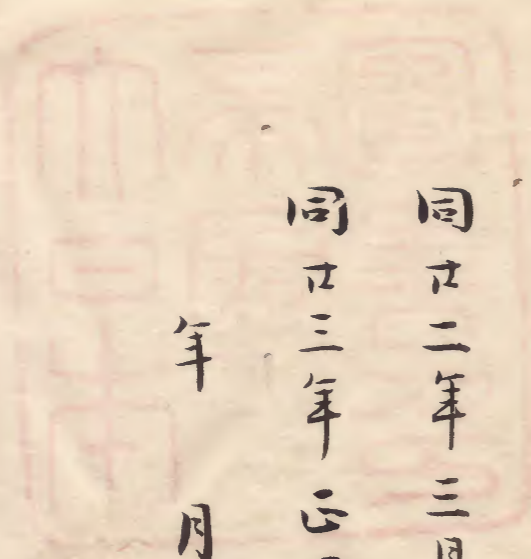 同廿二年三月
同廿三年正
年 月